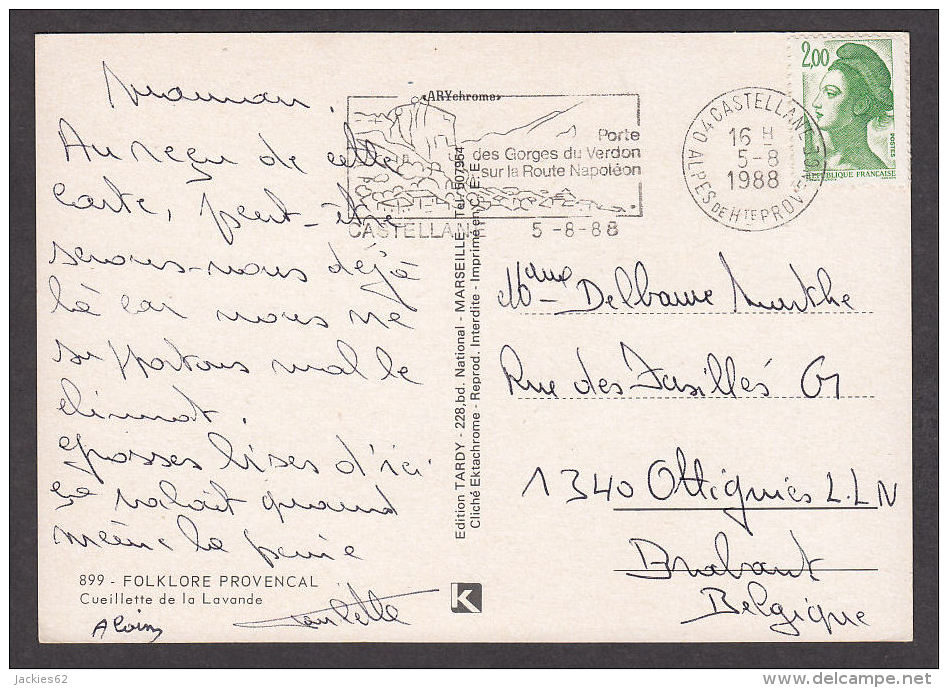 Maman,
Au reçu de cette
carte, peut-être
serons-nous déjà
là car nous ne
supportons mal le
climat.
Grosses bises d'ici
ça valait quand
même la peine
Paulette
Alain
899 - FOLKLORE PROVENCAL
Cueillette de la Lavande
«ARYchrome»
Porte
des Gorges du Verdon
sur la Route Napoléon
CASTELLANE 5-8-88
04 CASTELLANE
16 H
5-8
1988
ALPES DE HTE PROVENCE
2,00
POSTES
REPUBLIQUE FRANCAISE
Edition TARDY - 228, bd. National - MARSEILLE - Tél. 507954
Cliché Ektachrome - Reprod. Interdite - Imprimé en C.E.E.
K
Mme Delbauve Marthe
Rue des Fusillés 61
1340 Ottignies L.L.N
Brabant
Belgique
Jackies62
www.delcampe.net